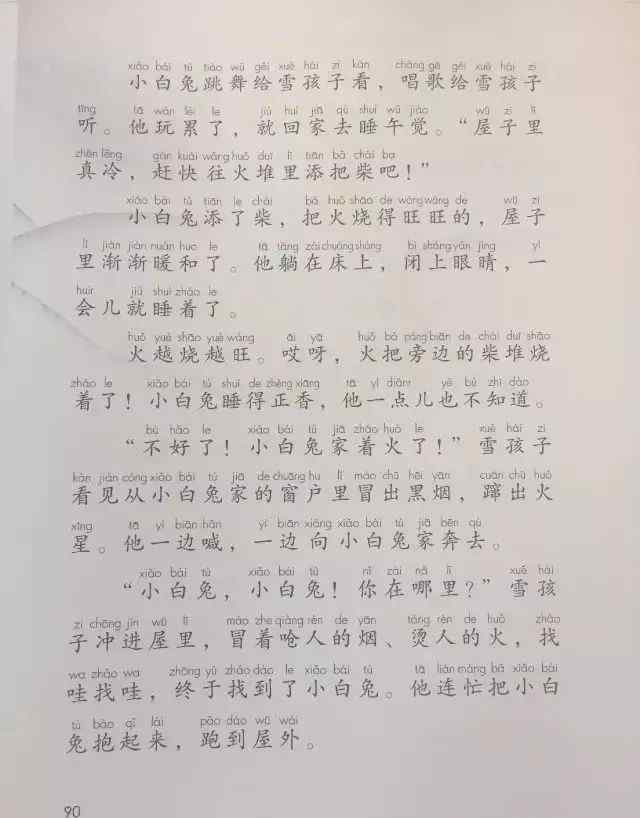 xiǎo bái tù tiào wǔ gěi xuě hái zi kàn chàng gē gěi xuě hái zi
小白兔跳舞给雪孩子看，唱歌给雪孩子
tīng tā wán lèi le jiù huí jiā qù shuì wǔ jiào wū zi lǐ
听。他玩累了，就回家去睡午觉。“屋子里
zhēn lěng gǎn kuài wǎng huǒ duī lǐ tiān bǎ chái ba
真冷，赶快往火堆里添把柴吧！”
xiǎo bái tù tiān le chái bǎ huǒ shāo de wàng wàng de wū zi
小白兔添了柴，把火烧得旺旺的，屋子
lǐ jiàn jiàn nuǎn huo le tā tǎng zài chuáng shàng bì shàng yǎn jīng yí
里渐渐暖和了。他躺在床上，闭上眼睛，一
huìr jiù shuì zháo le
会儿就睡着了。
huǒ yuè shāo yuè wàng āi yā huǒ bǎ páng biān de chái duī shāo
火越烧越旺。哎呀，火把旁边的柴堆烧
zháo le xiǎo bái tù shuì de zhèng xiāng tā yì diǎnr yě bù zhī dào
着了！小白兔睡得正香，他一点儿也不知道。
bù hǎo le xiǎo bái tù jiā zháo huǒ le xuě hái zi
“不好了！小白兔家着火了！”雪孩子
kàn jiàn cóng xiǎo bái tù jiā de chuāng hu lǐ mào chū hēi yān cuān chū huǒ
看见从小白兔家的窗户里冒出黑烟，蹿出火
xīng tā yì biān hǎn yì biān xiàng xiǎo bái tù jiā bēn qù
星。他一边喊，一边向小白兔家奔去。
xiǎo bái tù xiǎo bái tù nǐ zài nǎ lǐ xuě hái
“小白兔，小白兔！你在哪里？”雪孩
zi chōng jìn wū lǐ mào zhe qiàng rén de yān tàng rén de huǒ zhǎo
子冲进屋里，冒着呛人的烟、烫人的火，找
wa zhǎo wa zhōng yú zhǎo dào le xiǎo bái tù tā lián máng bǎ xiǎo bái
哇找哇，终于找到了小白兔。他连忙把小白
tù bào qǐ lái pǎo dào wū wài
兔抱起来，跑到屋外。
90